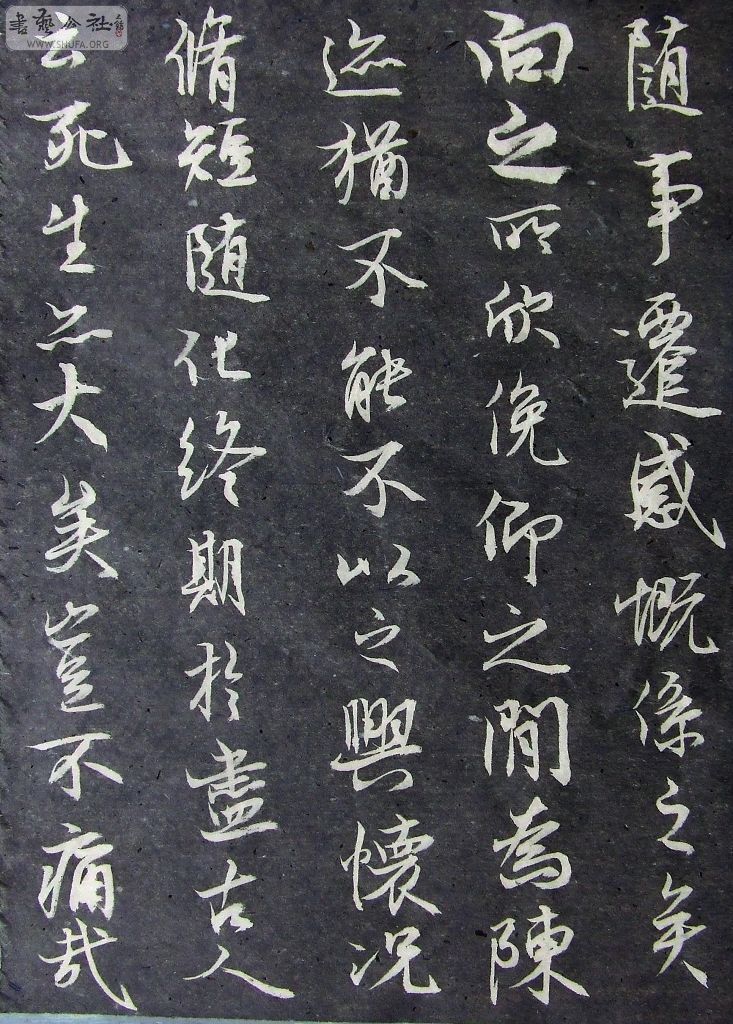 随事遷感慨係之矣
向之所欣俛仰之間為陳
迹猶不能不以之興懷况
脩短随化終期於盡古人
云死生亦大矣豈不痛哉
書藝公社
WWW.SHUFA.ORG